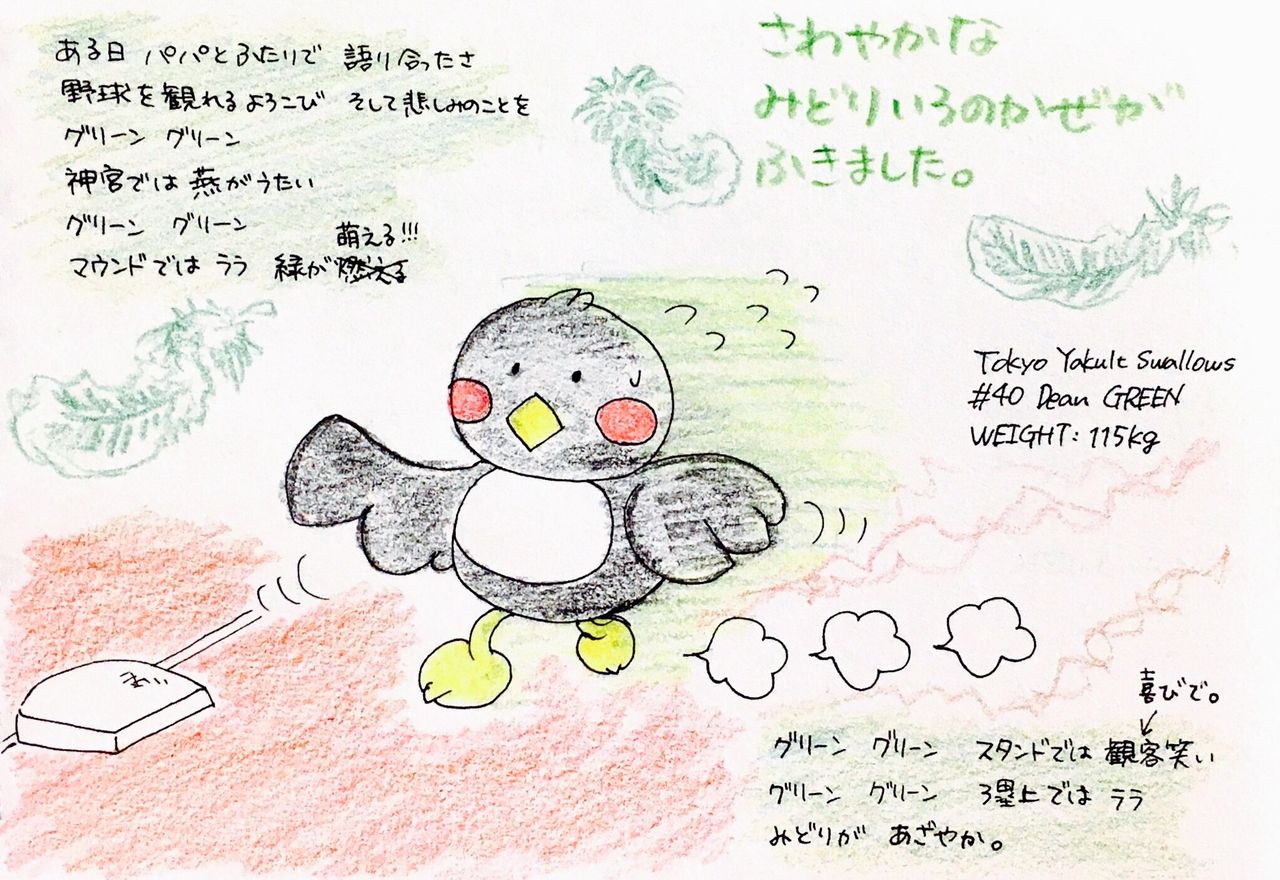 ある日 パパとふたりで 語り合ったさ
野球を観れるよろこび そして悲しみのことを
グリーン グリーン
神宮では燕がうたい
グリーン グリーン
萌える!!!
マウンドでは ララ 緑が燃える
さわやかな
みどりいろのかぜが
ふきました。
Tokyo Yakult Swallows
#40 Dean GREEN
WEIGHT: 115kg
喜びで。
グリーン グリーン スタンドでは 観客笑い
グリーン グリーン 3塁上では ララ
みどりが あざやか。